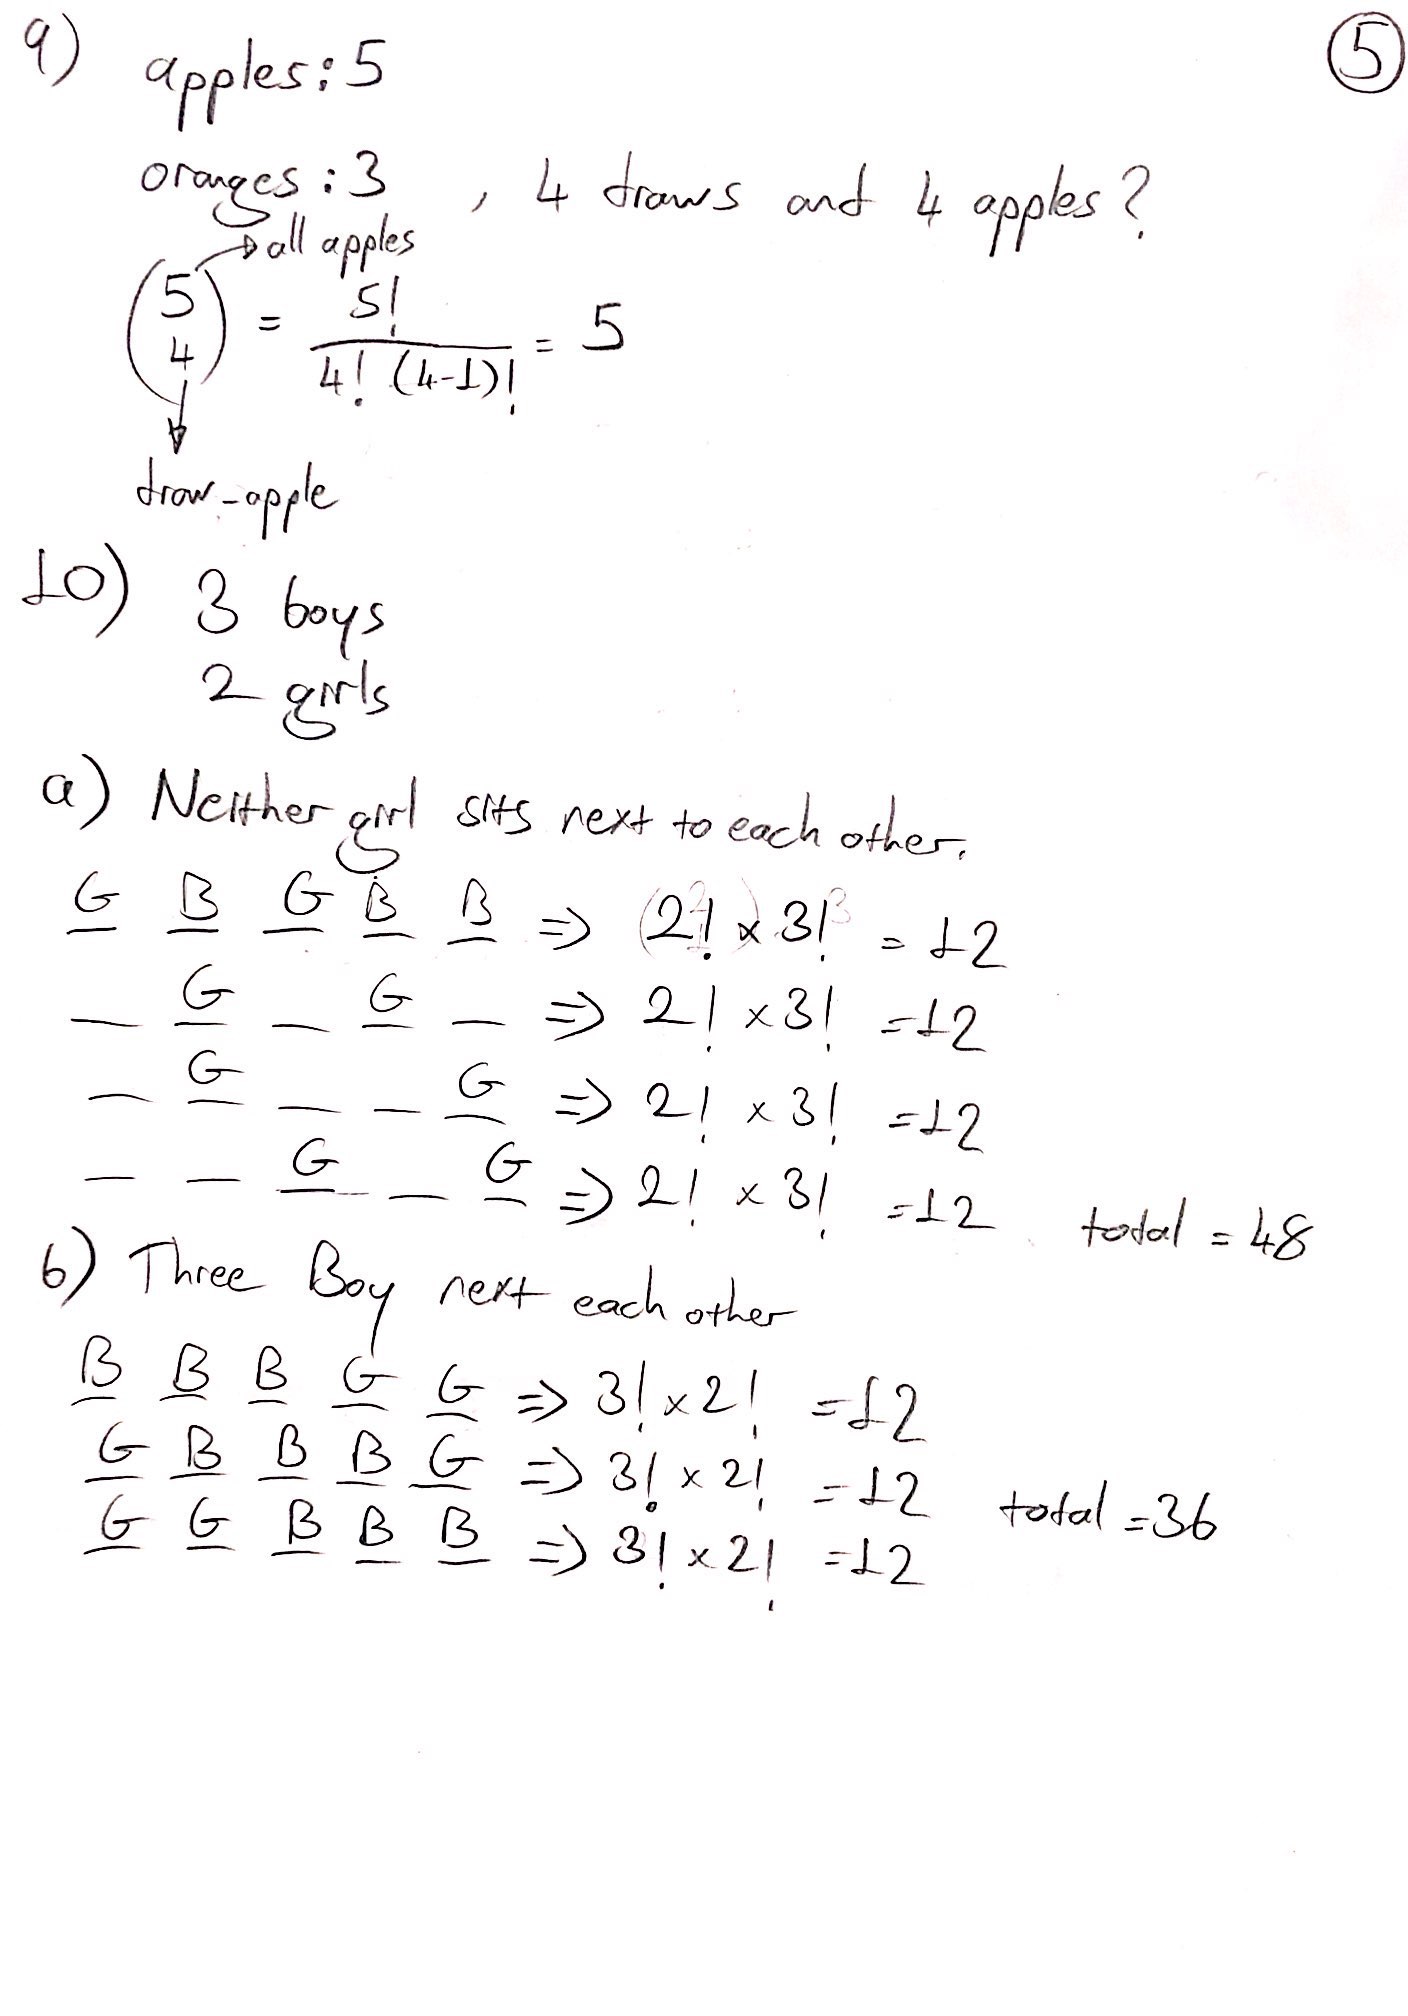 9) apples: 5
5
oranges: 3 , 4 draws and 4 apples?
all apples
(5 4) = 5! / 4! (4-1)! = 5
draw-apple
10) 3 boys
2 girls
a) Neither girl sits next to each other.
G B G B B => 2! x 3! = 12
_ G _ G _ => 2! x 3! = 12
_ G _ _ G => 2! x 3! = 12
_ _ G _ G => 2! x 3! = 12 total = 48
b) Three Boy next each other
B B B G G => 3! x 2! = 12
G B B B G => 3! x 2! = 12 total = 36
G G B B B => 3! x 2! = 12